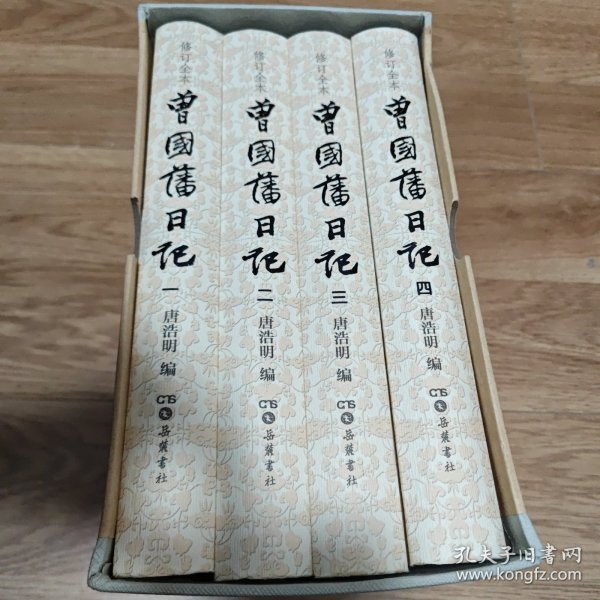 修订全本
曾國藩日記
一
唐浩明 编
岳麓書社
修订全本
曾國藩日記
二
唐浩明 编
岳麓書社
修订全本
曾國藩日記
三
唐浩明 编
岳麓書社
修订全本
曾國藩日記
四
唐浩明 编
岳麓書社
孔夫子旧书网
www.kongfz.com